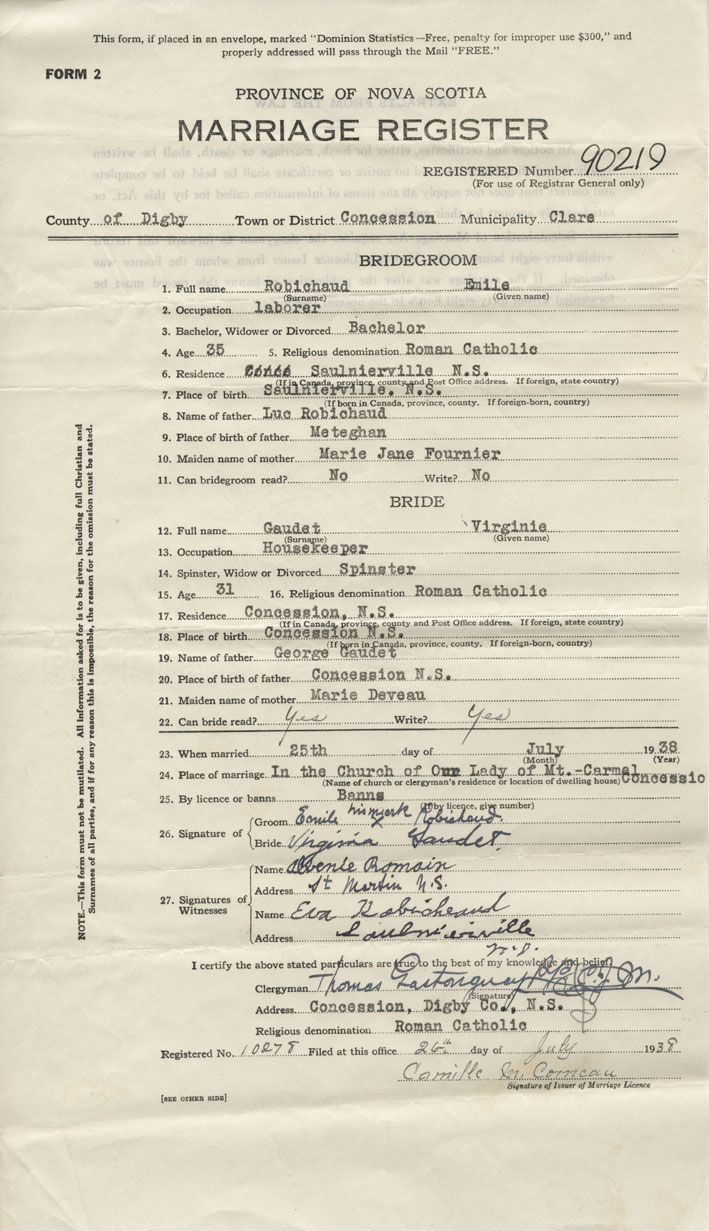 This form, if placed in an envelope, marked "Dominion Statistics—Free, penalty for improper use $300," and
properly addressed will pass through the Mail "FREE."
FORM 2
PROVINCE OF NOVA SCOTIA
MARRIAGE REGISTER
REGISTERED Number 90219
(For use of Registrar General only)
County of Digby Town or District Concession Municipality Clare
BRIDEGROOM
1. Full name Robichaud Emile
(Surname) (Given name)
2. Occupation laborer
3. Bachelor, Widower or Divorced Bachelor
4. Age 35 5. Religious denomination Roman Catholic
6. Residence Saulnierville N.S.
(If in Canada, province, county and Post Office address. If foreign, state country)
7. Place of birth Saulnierville, N.S.
(If born in Canada, province, county. If foreign-born, country)
8. Name of father Luc Robichaud
9. Place of birth of father Meteghan
10. Maiden name of mother Marie Jane Fournier
11. Can bridegroom read? No Write? No
BRIDE
12. Full name Gaudet Virginie
(Surname) (Given name)
13. Occupation Housekeeper
14. Spinster, Widow or Divorced Spinster
15. Age 31 16. Religious denomination Roman Catholic
17. Residence Concession, N.S.
(If in Canada, province, county and Post Office address. If foreign, state country)
18. Place of birth Concession N.S.
(If born in Canada, province, county. If foreign-born, country)
19. Name of father George Gaudet
20. Place of birth of father Concession N.S.
21. Maiden name of mother Marie Deveau
22. Can bride read? Yes Write? Yes
23. When married 25th day of July 1938
(Month) (Year)
24. Place of marriage In the Church of Our Lady of Mt.-Carmel Concessio
(Name of church or clergyman's residence or location of dwelling house)
25. By licence or banns Banns
(If by licence, give number)
26. Signature of
Groom Emile his mark Robichaud.
Bride Virginia Gaudet.
27. Signatures of Witnesses
Name Romain
Address St Martin N.S.
Name Eva Robicheaud
Address Saulnierville
N.S.
I certify the above stated particulars are true to the best of my knowledge and belief.
Clergyman Thomas
(Signature)
Address Concession, Digby Co., N.S.
Religious denomination Roman Catholic
Registered No. 10278 Filed at this office 26th day of July 1938
Camille M. Comeau
Signature of Issuer of Marriage Licence
[SEE OTHER SIDE]
NOTE.—This form must not be mutilated. All information asked for is to be given, including full Christian and
Surnames of all parties, and if for any reason this is impossible, the reason for the omission must be stated.